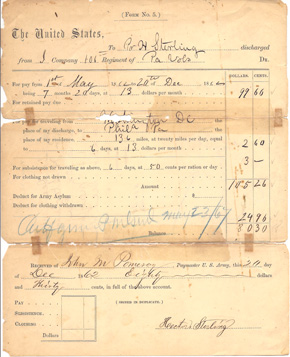 (FORM No. 5.)
The United States,
To Pr H Sterling discharged
from I Company 106 Regiment of Pa Vols Dr.
DOLLARS. CENTS.
For pay from 1st May 1862 to 20th Dec 1862
being 7 months 20 days, at 13 dollars per month 99 66
For retained pay due
for traveling from Washington DC
place of my discharge, to Phila Pa
place of my residence, 136 miles, at twenty miles per day, equal
6 days, at 13 dollars per month 2 60
For subsistence for traveling as above, 6 days, at 50 cents per ration or day 3 —
For clothing not drawn
Amount 105 26
Deduct for Army Asylum
Deduct for clothing overdrawn
May 23/67
24 96
Balance 80 30
RECEIVED of John M Pomeroy Paymaster U. S. Army, this 20
Dec 1862 Eighty dollars
and thirty cents, in full of the above account.
PAY
(SIGNED IN DUPLICATE.)
SUBSISTENCE
CLOTHING
Dollars
Sterling